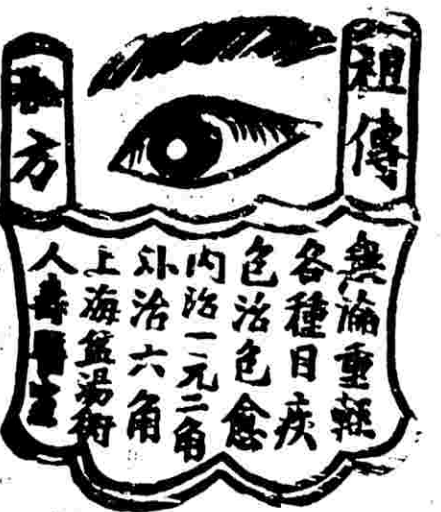 祖傳
方
無論重輕
各種目疾
包治包愈
内治一元二角
外治六角
上海盆湯衖
人壽醫